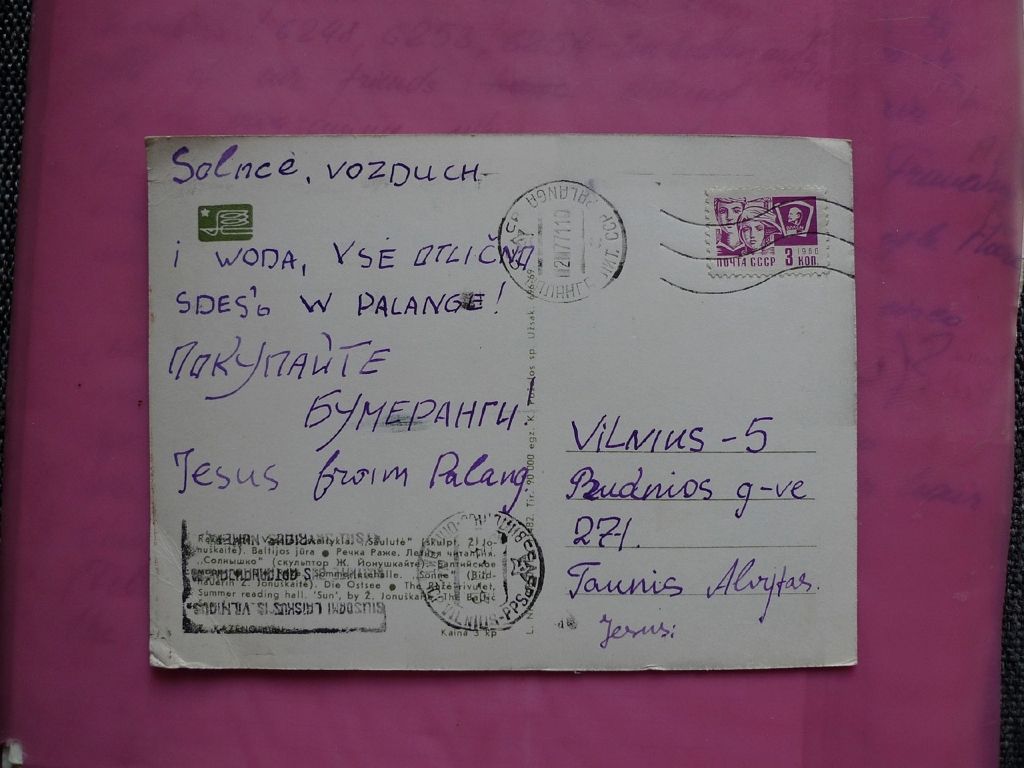 Solnce, VOZDUCH
i WODA, VSE OTLIČNO
SDES'b W PALANGE!
ПОКУПАЙТЕ
БУМЕРАНГИ
Jesus from Palang
ПОЧТА СССР 3 КОП
1966
PALANGA
VILNIUS - 5
Budnios g-ve
271.
Taunis Alvytas.
Jesus:
"Saulutė" (skulpt. Ž. Jo-
nuškaitė). Baltijos jūra • Речка Раже. Летняя читальня.
„Солнышко" (скульптор Ж. Йонушкайте). Балтийское
"Sonne" (Bild-
hauerin Ž. Jonuškaitė). Die Ostsee • The Ražė rivulet.
Summer reading hall. 'Sun', by Ž. Jonuškaitė. The Baltic
SIUSDAMI LAIŠKUS IŠ VILNIAUS
Kaina 3 kp